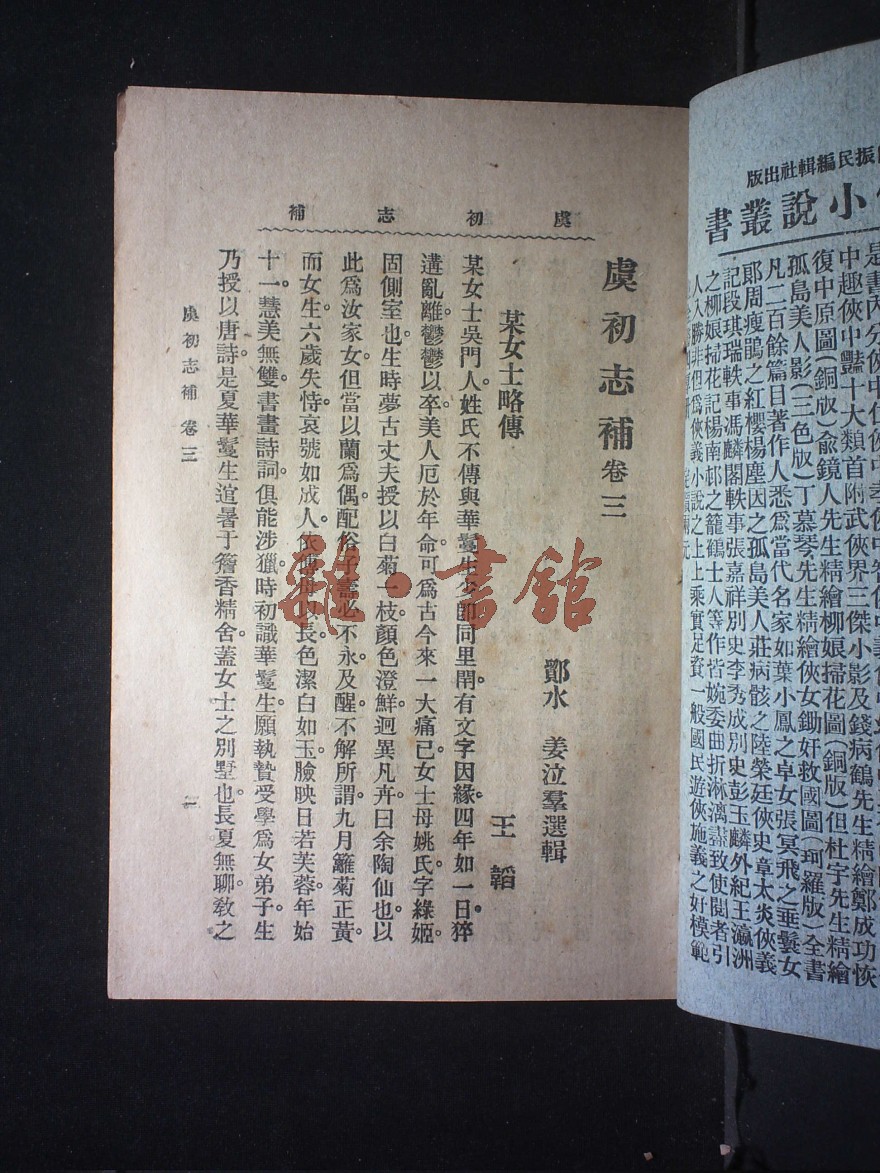 虞初志補
虞初志補 卷三
鄮水 姜泣羣選輯
某女士略傳
王韜
某女士吳門人。姓氏不傳與華鬘生少卽同里閈。有文字因緣四年如一日。猝
遘亂離。鬱鬱以卒。美人厄於年命。可爲古今來一大痛已。女士母姚氏字綠姬。
固側室也。生時夢古丈夫授以白菊一枝。顏色澄鮮。迥異凡卉。曰余陶仙也。以
此爲汝家女。但當以蘭爲偶。配俗子壽必不永。及醒。不解所謂。九月籬菊正黃。
而女生。六歲失恃。哀號如成人。依傅母以長。色潔白如玉。臉映日若芙蓉。年始
十一。慧美無雙。書畫詩詞。俱能涉獵。時初識華鬘生。願執贄受學爲女弟子。生
乃授以唐詩。是夏華鬘生逭暑于簷香精舍。蓋女士之別墅也。長夏無聊。敎之
虞初志補 卷三
一
振民編輯社出版
小說叢書
中趣俠中豔十大類首附武俠界三傑小影及錢病鶴先生精繪鄭成功恢
復中原圖(銅版)俞鏡人先生精繪柳娘掃花圖(銅版)但杜宇先生精繪
孤島美人影(三色版)丁慕琴先生精繪俠女鋤奸救國圖(珂羅版)全書
凡二百餘篇日著作人悉爲當代名家如葉小鳳之卓女張冥飛之垂髫女
郎周瘦鵑之紅櫻楊塵因之孤島美人莊病骸之陸榮廷俠史章太炎俠義
記段琪瑞軼事馮麟閣軼事張嘉祥別史李秀成別史彭玉麟外紀王瀛洲
之柳娘掃花記楊南邨之籠鶴士人等作皆婉委曲折淋漓盡致使閱者引
人入勝非但爲俠義小說之上上乘實足資一般國民遊俠施義之好模範
雜·書館